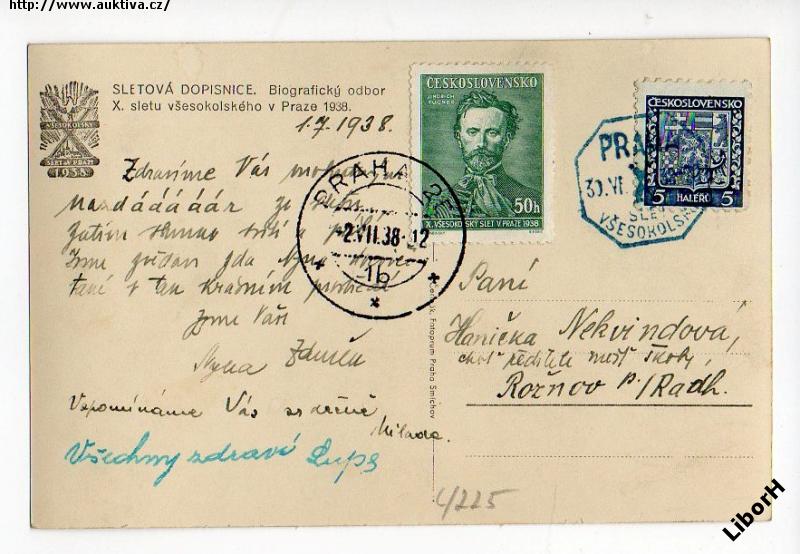 http://www.auktiva.cz/
SLETOVÁ DOPISNICE. Biografický odbor
X. sletu všesokolského v Praze 1938.
VŠESOKOLSKÝ
SLET V PRAZE
1938
1.7.1938.
Zdravíme Vás
nazdááááár ze sletu
Jsme
v tak krásném
Jsme Vaši
Zdeněk
Vzpomínáme Vás srdečně
Milada.
Všechny zdraví
ČESKOSLOVENSKO
JINDŘICH
FUGNER
50h
X. VŠESOKOLSKÝ SLET V PRAZE 1938
PRAHA 25
-2.VII.38-12
1b
ČESKOSLOVENSKO
5 HALÉŘŮ 5
PRAHA
30.VI.
SLET
VŠESOKOLSKÝ
Fotoprum Praha Smíchov
Paní
Hanička Nekvindová,
choť ředitele měšť. školy,
Rožnov p/Radh.
4/225
LiborH